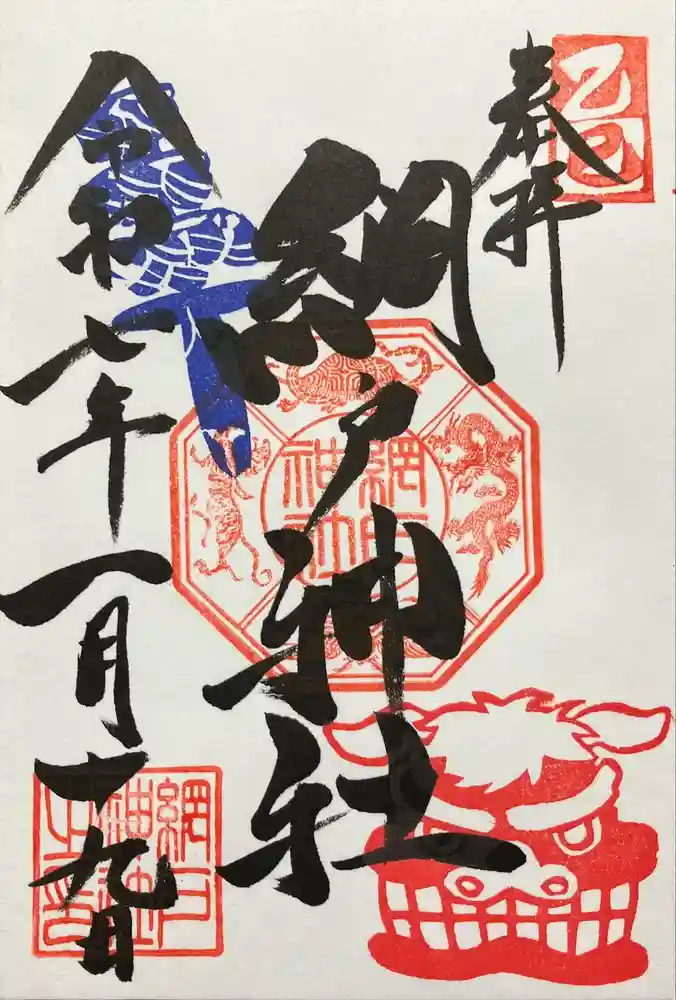 奉拝
乙巳
網戸神社
網戸
神社
令和七年一月十九日
網戸
神社
之印